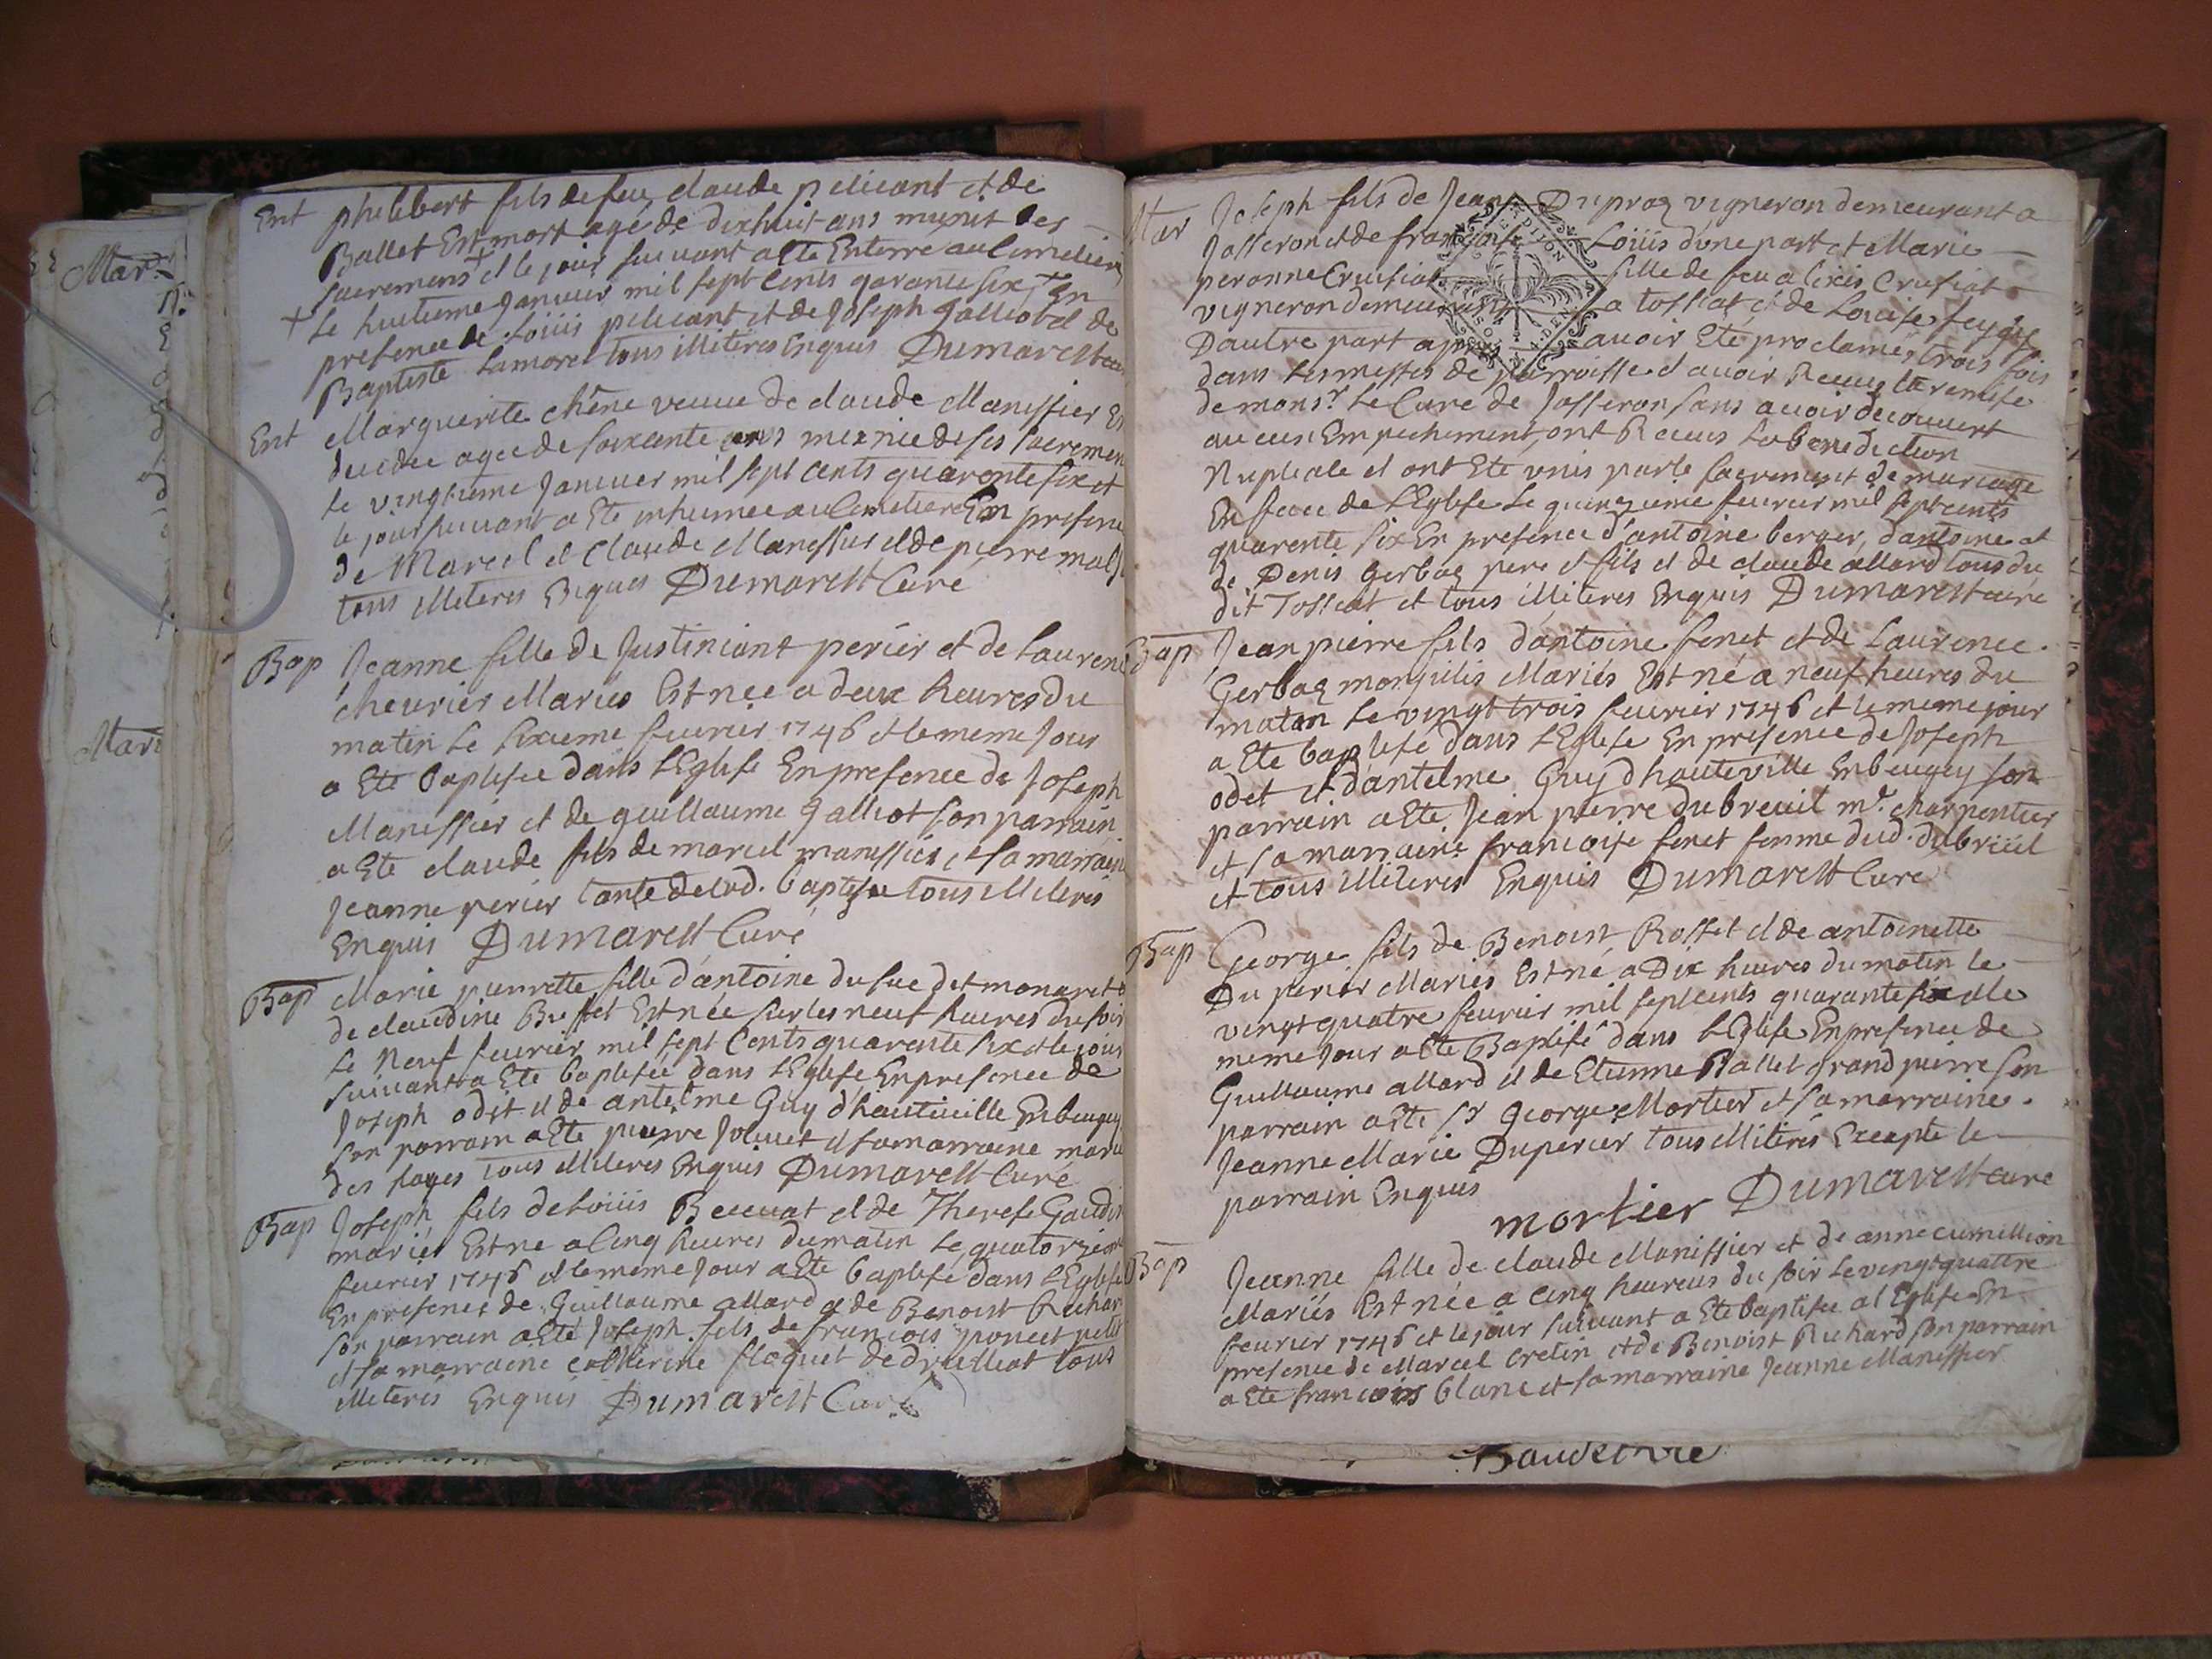 Mar
Mari
Ent philibert fils de feu claude pelicant et de
Ballet Est mort agé de dixhuit ans munit des
sacremens + et le jour suivant a Ete Enterre au Cimetiere
+ Le huitieme Janvier mil sept Cents qarante six + En
presence de Loüis pelicant et de Joseph galliot et de
Baptiste Lamorel tous illiteres Enquis Dumarest curé
Ent Marguerite chêne veuve de claude Manissier Est
decedee agee de soixante ans munie de ses sacremen
le vingtieme Janvier mil sept cents quarente six et
le jour suivant a Ete inhumee au Cimetiere En presence
de Marcel et Claude Manissier et de pierre
tous illiteres Enquis Dumarest Curé
Bap Jeanne fille de Justiniant perier et de Laurence
chevrier Mariés Est née a deux heures du
matin Le sixieme fevrier 1746 et le meme Jour
a Ete baptisée dans L'Eglise En presence de Joseph
Manissier et de guillaume galliot son parrain
a Ete claude fils de marcel manissier et sa marraine
Jeanne perier tante de lad. baptisee tous illiteres
Enquis Dumarest Curé
Bap Marie pierrette fille d'antoine du suc dit monaret et
de claudine Buffet Est née sur les neuf heures du soir
Le Neuf fevrier mil sept Cents quarente six et le jour
suivant a Ete baptisée dans L'Eglise En presence de
Joseph odet et de antelme Guy d'hauteville En beugey
son parrain a Ete pierre Jolivet et sa marraine marie
des fayes tous illiteres Enquis Dumarest Curé
Bap Joseph fils de Loüis Beccat et de Therese Gaudi
mariés Est ne a Cinq heures du matin le quatorzieme
fevrier 1746 et le meme Jour a Ete baptisé dans L'Eglise
En presence de Guillaume allard et de Benoist Richar
son parrain a Eté Joseph fils de francois poncet petit
et sa marraine catherine floquet de druillat tous
illiteres Enquis Dumarest Curé
Mar Joseph fils de Jean Dupraz vigneron demeurant a
Jasseron et de francoise Loüis d'une part et Marie
peronne Crusiat fille de feu alixis Crusiat
vigneron demeurant a tossiat et de Loüise
D'autre part apres avoir Ete proclamés trois fois
dans les messes de parroisse et avoir Receus la remise
de monsr. Le Curé de Jasseron sans avoir decouvert
aucun Empechement, ont Receus La benediction
Nuptiale et ont Ete unis par le sacrement de mariage
En face de L'Eglise Le quinzieme fevrier mil sept cents
quarente six En presence d'antoine berger, d'antoine et
de Denis Gerbaz pere et fils et de claude allard tous du
dit Tossiat et tous illiteres Enquis Dumarest curé
Bap Jean pierre fils d'antoine fenet et de Laurence
Gerbaz Mariés Est né a neuf heures du
matin Le vingt trois fevrier 1746 et le meme jour
a Ete baptisé dans L'Eglise En presence de Joseph
odet et d'antelme Guy d'hauteville En beugey son
parrain a Ete Jean pierre dubreuil me. charpentier
et sa marraine francoise fenet femme dud. dubreüil
et tous illiteres Enquis Dumarest Curé
Bap George fils de Benoist Rosset et de antoinette
Du perier Mariés Est né a Dix heures du matin le
vingt quatre fevrier mil sept cents quarante six et le
meme Jour a Ete Baptisé dans L'Eglise En presence de
Guillaume allard et de Etienne Ballet grand pierre son
parrain a Ete Sr George Mortier et sa marraine
Jeanne Marie Duperier tous illiterés Excepte le
parrain Enquis
mortier Dumarest curé
Bap Jeanne fille de claude Manissier et de anne cumillion
Mariés Est née a cinq heureus du soir Le vingt quattre
fevrier 1746 et le jour suivant a Ete baptisee a l'Eglise En
presence de Marcel cretin et de Benoist Richard son parrain
a Ete francois blanc et sa marraine Jeanne Manissier